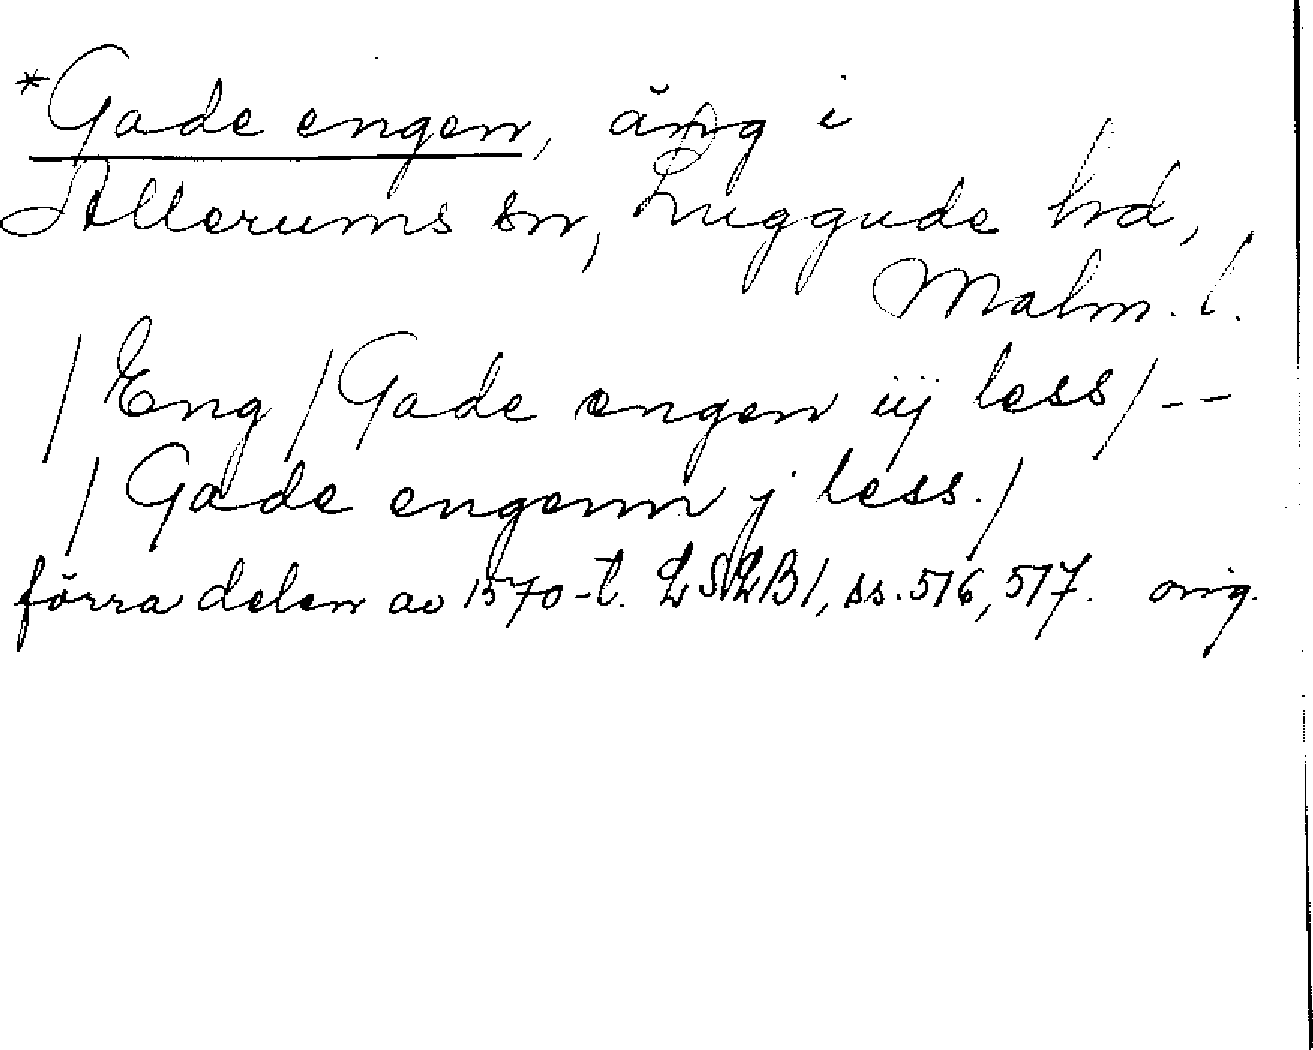 *Gade engen, äng i
Allerums sn, Luggude hd,
Malm. l.
/ Eng / Gade engen iij less / --
/ Gade engenn j less. /
förra delen av 1570-t. LSLB1, ss. 516, 517. orig.